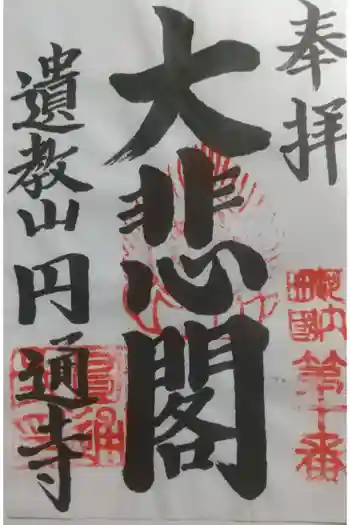 奉拝
第十番
大悲閣
遺教山円通寺